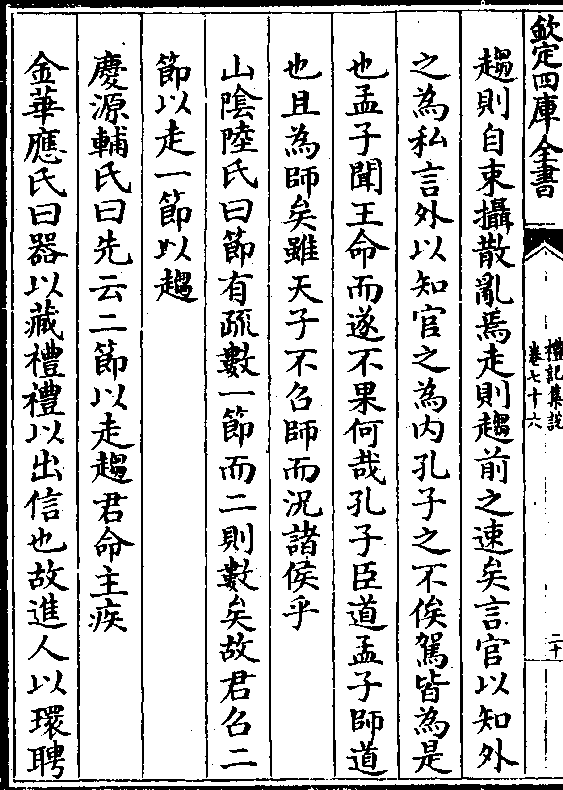 欽定四庫全書
禮記集說
卷七十六
二十
趨則自束攝散亂焉走則趨前之速矣言官以知外
之為私言外以知官之為内孔子之不俟駕皆為是
也孟子聞王命而遂不果何哉孔子臣道孟子師道
也且為師矣雖天子不召師而況諸侯乎
山陰陸氏曰節有疏數一節而二則數矣故君召二
節以走一節以趨
慶源輔氏曰先云二節以走趨君命主疾
金華應氏曰器以藏禮禮以出信也故進人以環聘